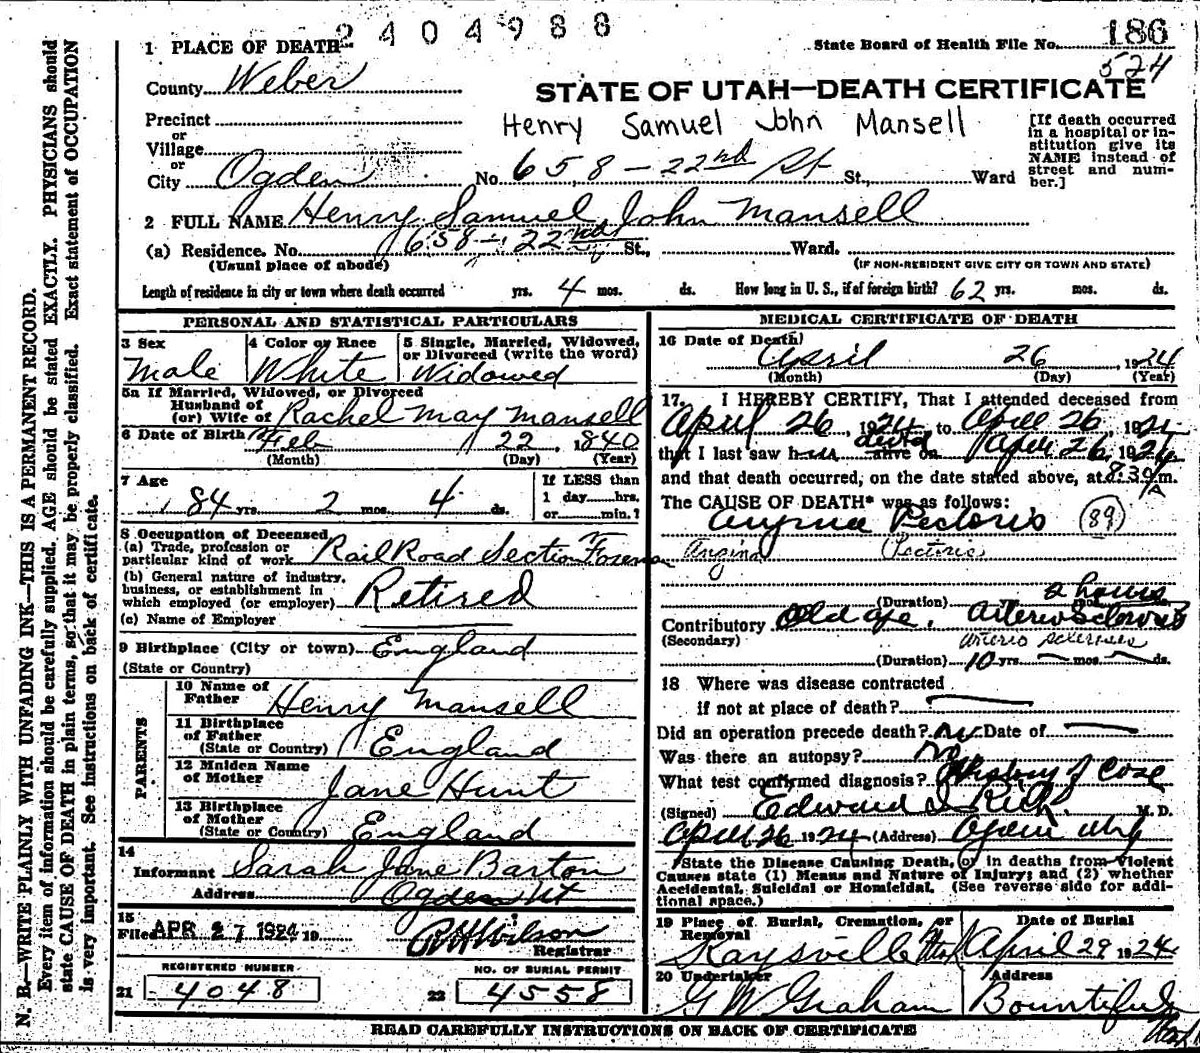 2404988
186
State Board of Health File No.
524
1 PLACE OF DEATH
County Weber
STATE OF UTAH—DEATH CERTIFICATE
Precinct
Henry Samuel John Mansell
or
Village
or
City Ogden No. 658-22nd St St., Ward
[If death occurred in a hospital or institution give its NAME instead of street and number.]
2 FULL NAME Henry Samuel John Mansell
(a) Residence. No. 658-22nd St., Ward.
(Usual place of abode) (IF NON-RESIDENT GIVE CITY OR TOWN AND STATE)
Length of residence in city or town where death occurred yrs. 4 mos. ds. How long in U. S., if of foreign birth? 62 yrs. mos. ds.
PERSONAL AND STATISTICAL PARTICULARS
3 Sex 4 Color or Race 5 Single, Married, Widowed, or Divorced (write the word)
Male White Widowed
5a If Married, Widowed, or Divorced
Husband of
(or) Wife of Rachel May Mansell
6 Date of Birth Feb 22 1840
(Month) (Day) (Year)
7 Age If LESS than
84 yrs. 2 mos. 4 ds. 1 day hrs.
or min.?
8 Occupation of Deceased
(a) Trade, profession or
particular kind of work Rail Road Section Foreman
(b) General nature of industry,
business, or establishment in
which employed (or employer) Retired
(c) Name of Employer
9 Birthplace (City or town) England
(State or Country)
PARENTS
10 Name of
Father Henry Mansell
11 Birthplace
of Father
(State or Country) England
12 Maiden Name
of Mother Jane Hunt
13 Birthplace
of Mother
(State or Country) England
14
Informant Sarah Jane Barton
Address Ogden Ut
15
Filed APR 27 1924 19 Wilson
Registrar
REGISTERED NUMBER NO. OF BURIAL PERMIT
21 4048 22 4558
MEDICAL CERTIFICATE OF DEATH
16 Date of Death
April 26 1924
(Month) (Day) (Year)
17. I HEREBY CERTIFY, That I attended deceased from
April 26, 1924, to April 26, 1924
that I last saw h alive on April 26, 1924
and that death occurred, on the date stated above, at 8:30 A m.
The CAUSE OF DEATH* was as follows:
Angina Pectoris (89)
Angina (Pectoris)
2 hours
(Duration) yrs. mos. ds.
Contributory Old age, Arterio Sclerosis
(Secondary) Arterio sclerosis
(Duration) 10 yrs. mos. ds.
18 Where was disease contracted
if not at place of death?
Did an operation precede death? No Date of
Was there an autopsy? No
What test confirmed diagnosis? History of Case
(Signed) Edward I. Rich, M. D.
April 26 1924 (Address) Ogden Utah
*State the Disease Causing Death, or in deaths from Violent
Causes state (1) Means and Nature of Injury; and (2) whether
Accidental, Suicidal or Homicidal. (See reverse side for additional space.)
19 Place of Burial, Cremation, or Removal Date of Burial
Kaysville Utah April 29 1924
20 Undertaker Address
G W Graham Bountiful Utah
READ CAREFULLY INSTRUCTIONS ON BACK OF CERTIFICATE
N. B—WRITE PLAINLY WITH UNFADING INK—THIS IS A PERMANENT RECORD.
Every item of information should be carefully supplied. AGE should be stated EXACTLY. PHYSICIANS should
state CAUSE OF DEATH in plain terms, so that it may be properly classified. Exact statement of OCCUPATION
is very important. See instructions on back of certificate.